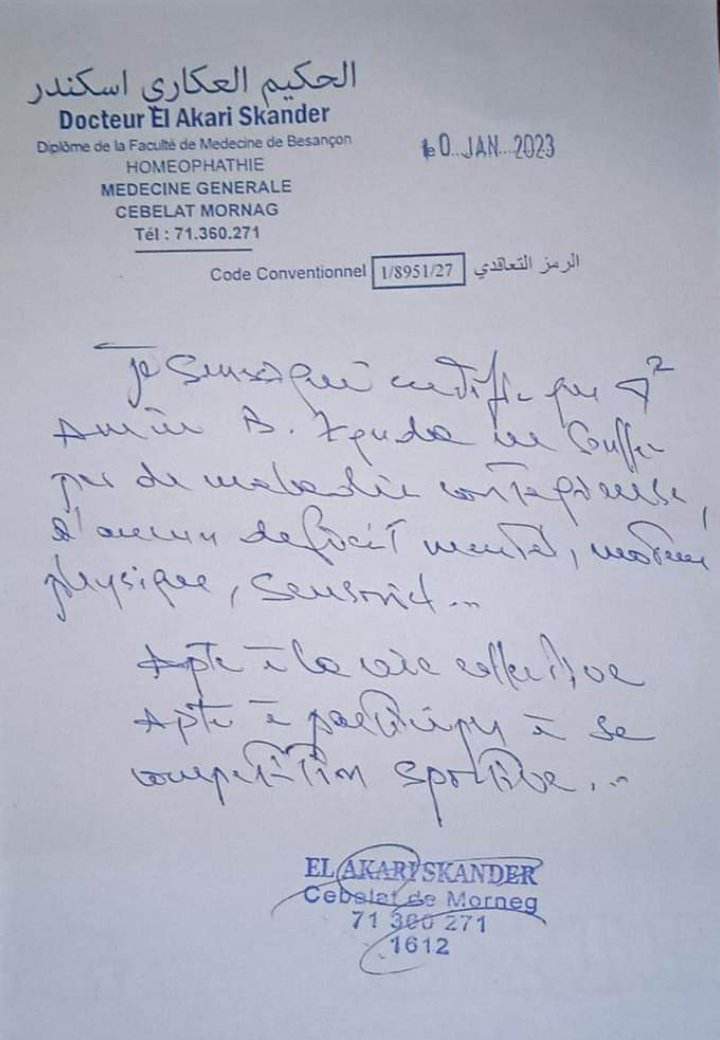 الحكيم العكاري اسكندر
Docteur El Akari Skander
Diplôme de la Faculté de Medecine de Besançon
HOMEOPHATHIE
MEDECINE GENERALE
CEBELAT MORNAG
Tél : 71.360.271
0 JAN 2023
Code Conventionnel 1/8951/27 الرمز التعاقدي
Je soussigné certifie que
B. ne souffre
pas de maladie contagieuse,
d'aucun deficit mental, moteur
physique, sensoriel...
Apte à la vie collective
Apte à participer à
competition sportive...
EL AKARI SKANDER
Cebelat de Morneg
71 360 271
1612